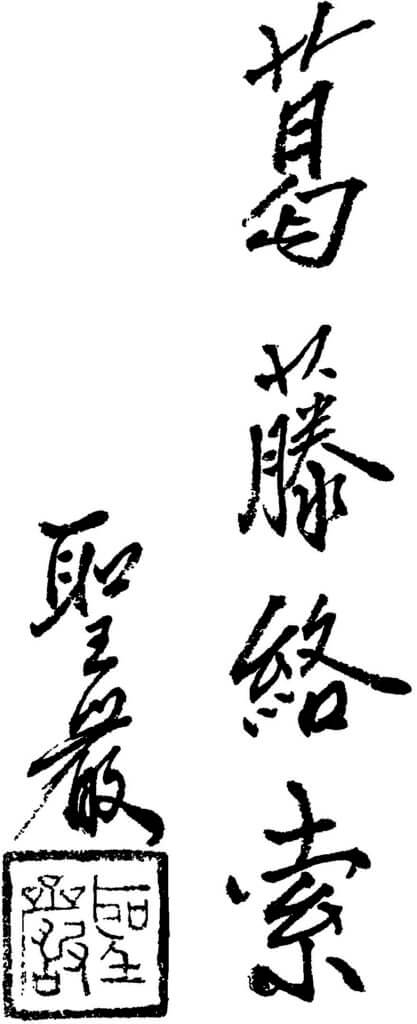 葛藤絡索
聖嚴
聖嚴